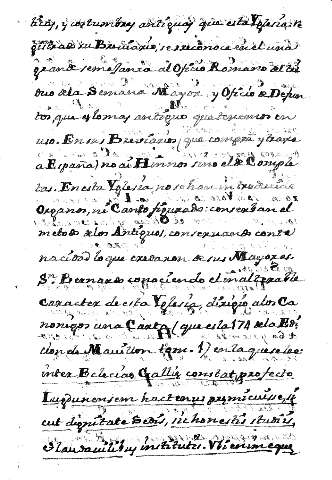 tiss, y costumbres antiguas que esta Yglesia
su Breviario, se reconoce en el una
grande semejansa al Oficio Romano del
duo de la Semana Mayor, y Oficio de Difun
tos, que es lo mas antiguo que tenemos en
uso. En sus Breviarios (que compré y traxe
a España) no ai Himnos sino el de Comple
tas. En esta Yglesia no se han introducido
Organos, ni Canto figurado: conservan el
metodo de los Antiguos, conservando con te
nacidad lo que eredaron de sus Mayores.
Sn. Bernardo conociendo el inalterable
caracter de esta Yglesia, dirigio a los Ca
nonigos una Carta (que es la 174 de la Edi
cion de Mavillon tom. 1) en la que se lee
inter Eclecias Galliæ constat profecto
Lugdunensem hactenus præmicuisse, si
cut dignitate Sedis, sic honestis studiis,
et laudavilibus institutis. Vbi enim eque